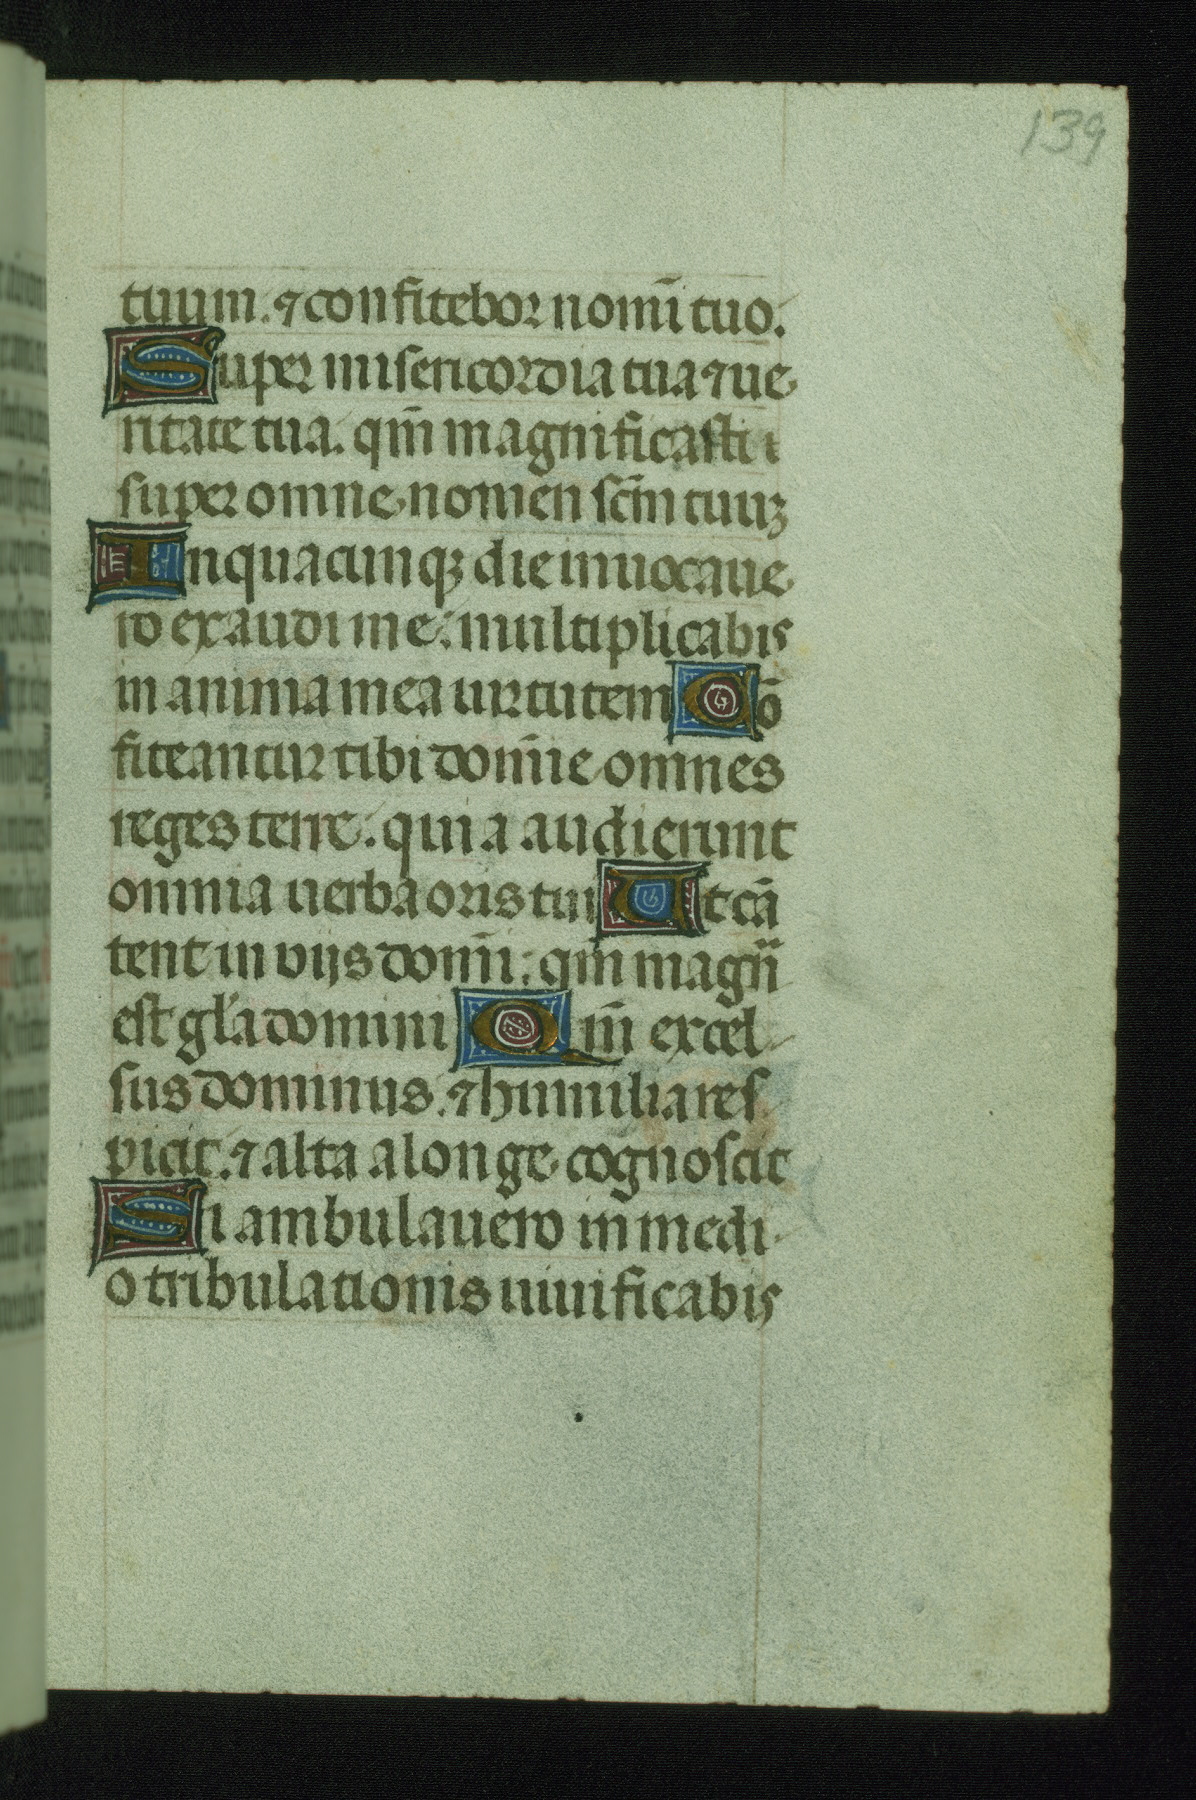 139
tuum. ⁊ confitebor nomī tuo.
Super misericordia tua ⁊ ue
ritate tua. qm̄ magnificasti
super omne nomen scm̄ tuuꝫ
In quacunqꝫ die inuocaue
ro exaudi me: multiplicabis
in anima mea uirtutem Cō
fiteantur tibi domīe omnes
reges terre: quia audierunt
omnia uerba oris tui Ut cā
tent in viis domī: qm̄ magn̄
est gl'a domini Qm̄ excel
sus dominus. ⁊ humilia res
picit. ⁊ alta a longe cognoscit
Si ambulauero in medi
o tribulationis uiuificabis